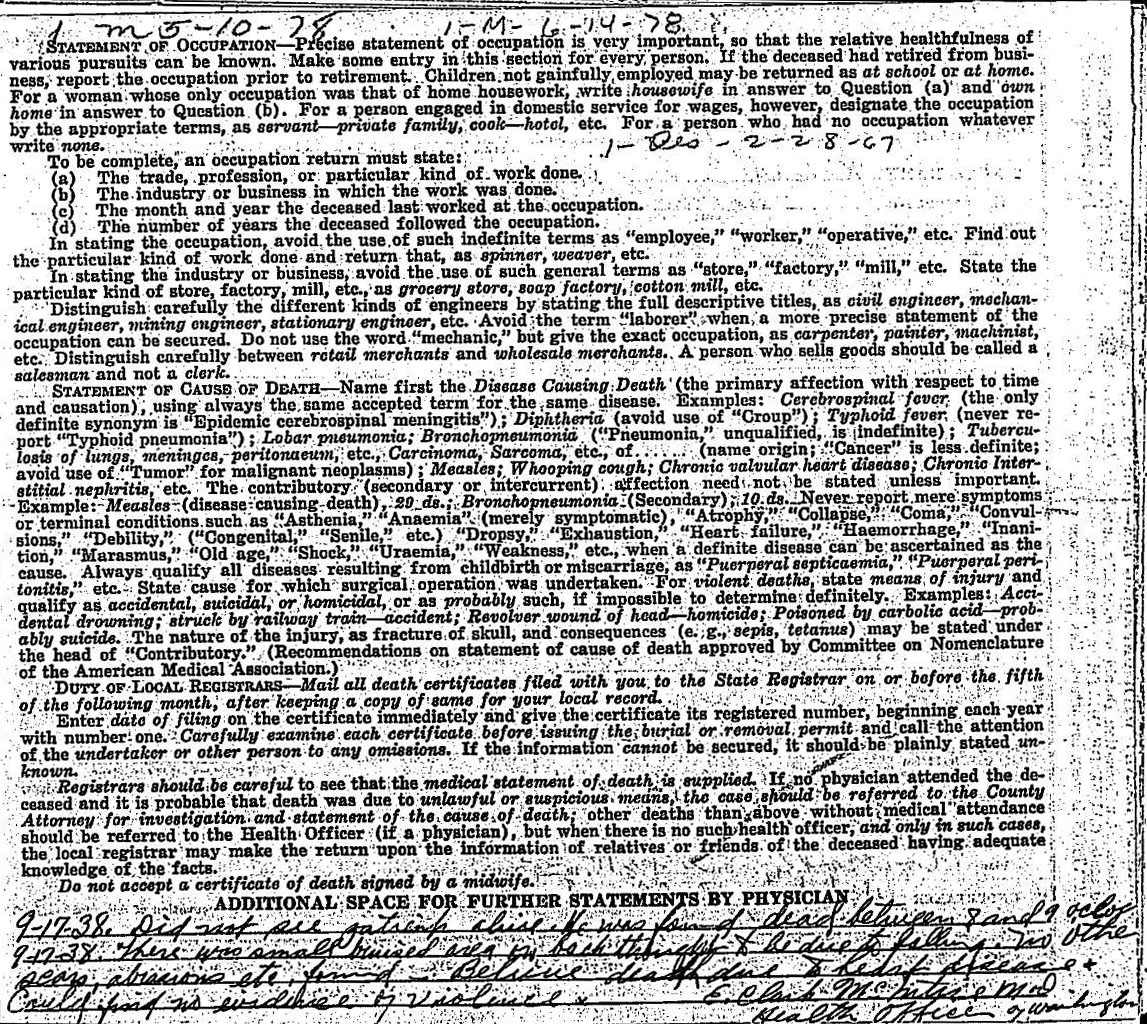 1 m 5-10-78 1-M- 6-14-78
STATEMENT OF OCCUPATION—Precise statement of occupation is very important, so that the relative healthfulness of
various pursuits can be known. Make some entry in this section for every person. If the deceased had retired from busi-
ness, report the occupation prior to retirement. Children not gainfully employed may be returned as at school or at home.
For a woman whose only occupation was that of home housework, write housewife in answer to Question (a) and own
home in answer to Question (b). For a person engaged in domestic service for wages, however, designate the occupation
by the appropriate terms, as servant—private family, cook—hotel, etc. For a person who had no occupation whatever
write none.
1- - 2-28-67
To be complete, an occupation return must state:
(a) The trade, profession, or particular kind of work done.
(b) The industry or business in which the work was done.
(c) The month and year the deceased last worked at the occupation.
(d) The number of years the deceased followed the occupation.
In stating the occupation, avoid the use of such indefinite terms as "employee," "worker," "operative," etc. Find out
the particular kind of work done and return that, as spinner, weaver, etc.
In stating the industry or business, avoid the use of such general terms as "store," "factory," "mill," etc. State the
particular kind of store, factory, mill, etc., as grocery store, soap factory, cotton mill, etc.
Distinguish carefully the different kinds of engineers by stating the full descriptive titles, as civil engineer, mechan-
ical engineer, mining engineer, stationary engineer, etc. Avoid the term "laborer" when a more precise statement of the
occupation can be secured. Do not use the word "mechanic," but give the exact occupation, as carpenter, painter, machinist,
etc. Distinguish carefully between retail merchants and wholesale merchants. A person who sells goods should be called a
salesman and not a clerk.
STATEMENT OF CAUSE OF DEATH—Name first the Disease Causing Death (the primary affection with respect to time
and causation), using always the same accepted term for the same disease. Examples: Cerebrospinal fever (the only
definite synonym is "Epidemic cerebrospinal meningitis"); Diphtheria (avoid use of "Croup"); Typhoid fever (never re-
port "Typhoid pneumonia"); Lobar pneumonia; Bronchopneumonia ("Pneumonia," unqualified, is indefinite); Tubercu-
losis of lungs, meninges, peritonaeum, etc., Carcinoma, Sarcoma, etc., of...... (name origin; "Cancer" is less definite;
avoid use of "Tumor" for malignant neoplasms); Measles; Whooping cough; Chronic valvular heart disease; Chronic Inter-
stitial nephritis, etc. The contributory (secondary or intercurrent) affection need not be stated unless important.
Example: Measles (disease causing death), 29 ds.; Bronchopneumonia (Secondary), 10 ds. Never report mere symptoms
or terminal conditions such as "Asthenia," "Anaemia" (merely symptomatic), "Atrophy," "Collapse," "Coma," "Convul-
sions," "Debility," ("Congenital," "Senile," etc.) "Dropsy," "Exhaustion," "Heart failure," "Haemorrhage," "Inani-
tion," "Marasmus," "Old age," "Shock," "Uraemia," "Weakness," etc., when a definite disease can be ascertained as the
cause. Always qualify all diseases resulting from childbirth or miscarriage, as "Puerperal septicaemia," "Puerperal peri-
tonitis," etc. State cause for which surgical operation was undertaken. For violent deaths, state means of injury and
qualify as accidental, suicidal, or homicidal, or as probably such, if impossible to determine definitely. Examples: Acci-
dental drowning; struck by railway train—accident; Revolver wound of head—homicide; Poisoned by carbolic acid—prob-
ably suicide. The nature of the injury, as fracture of skull, and consequences (e. g., sepis, tetanus) may be stated under
the head of "Contributory." (Recommendations on statement of cause of death approved by Committee on Nomenclature
of the American Medical Association.)
DUTY OF LOCAL REGISTRARS—Mail all death certificates filed with you to the State Registrar on or before the fifth
of the following month, after keeping a copy of same for your local record.
Enter date of filing on the certificate immediately and give the certificate its registered number, beginning each year
with number one. Carefully examine each certificate before issuing the burial or removal permit and call the attention
of the undertaker or other person to any omissions. If the information cannot be secured, it should be plainly stated un-
known.
Registrars should be careful to see that the medical statement of death is supplied. If no physician attended the de-
ceased and it is probable that death was due to unlawful or suspicious means, the case should be referred to the County
Attorney for investigation and statement of the cause of death; other deaths than above without medical attendance
should be referred to the Health Officer (if a physician), but when there is no such health officer, and only in such cases,
the local registrar may make the return upon the information of relatives or friends of the deceased having adequate
knowledge of the facts.
Do not accept a certificate of death signed by a midwife.
ADDITIONAL SPACE FOR FURTHER STATEMENTS BY PHYSICIAN
9-17-38. Did not see patient alive. He was found dead between 8 and 9 oclock
9-17-38. There was small bruised area on back thought to be due to falling. no other
scars, abrasions etc. found — Believe death due to heart disease +
Could find no evidence of violence. E. Clark McIntire MD
Health Officer of Wilmington